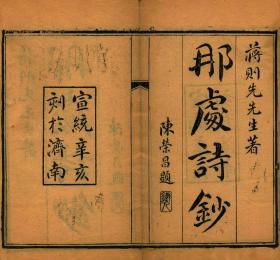 蔣則先先生著
那處詩鈔
陳榮昌題
宣統辛亥
刻於濟南